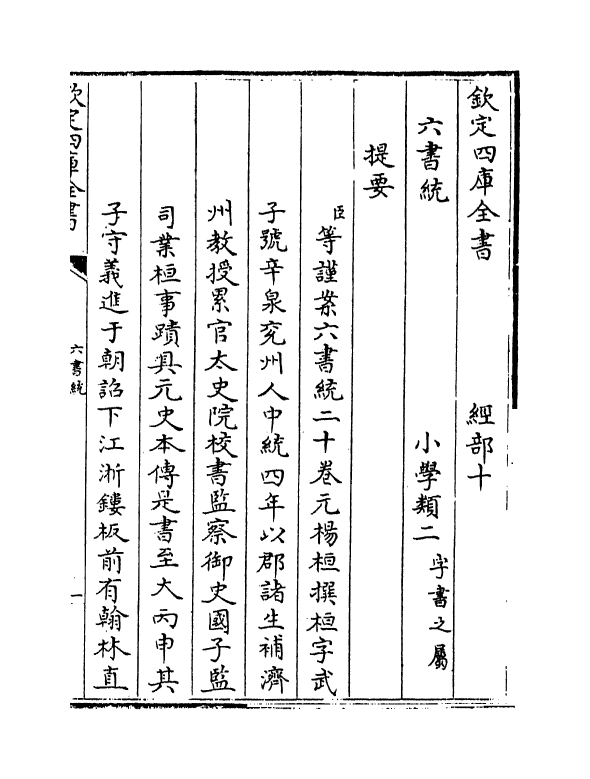 欽定四庫全書　經部十
六書統　小學類二字書之屬
提要
臣等謹案六書統二十卷元楊桓撰桓字武
子號辛泉兖州人中統四年以郡諸生補濟
州教授累官太史院校書監察御史國子監
司業桓事蹟具元史本傳是書至大丙申其
子守義進于朝詔下江浙鏤板前有翰林直
欽定四庫全書　六書統　一